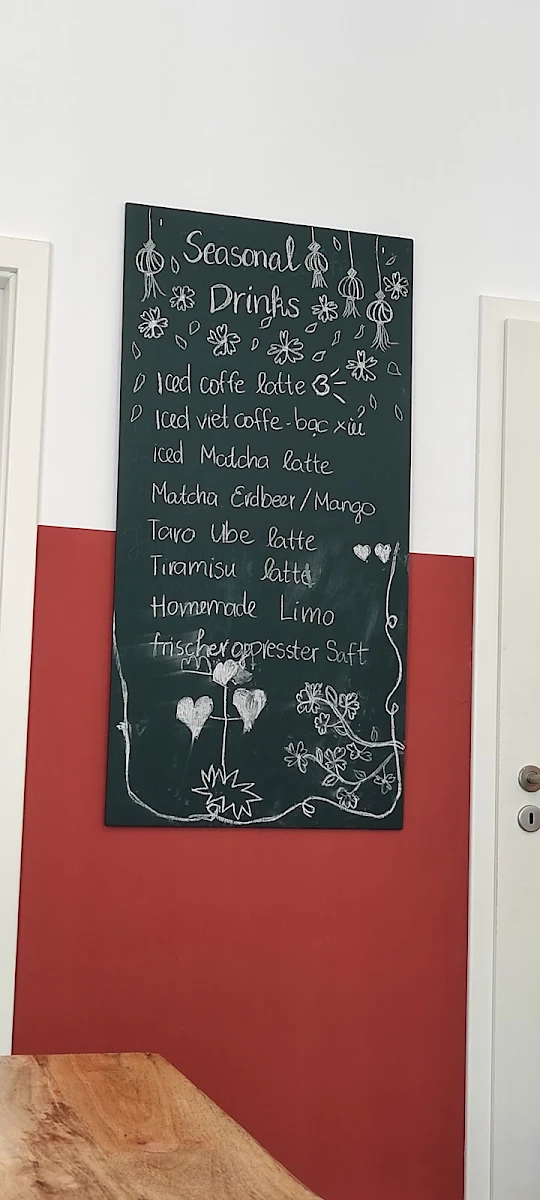 Seasonal
Drinks
Iced coffe latte
Iced viet coffe - bạc xỉu
iced Matcha latte
Matcha Erdbeer/Mango
Taro Ube latte
Tiramisu latte
Homemade Limo
frischer gepresster Saft